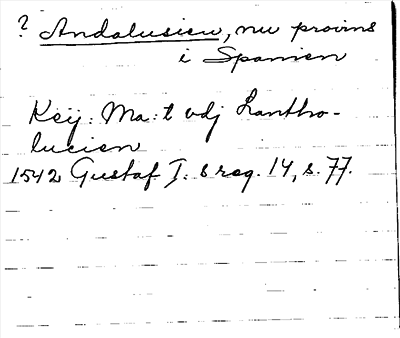 ? Andalusien, nu provins
i Spanien
Keij: Ma:t udj Lantho-
lucien
1542 Gustaf I:s reg. 14, s. 77.